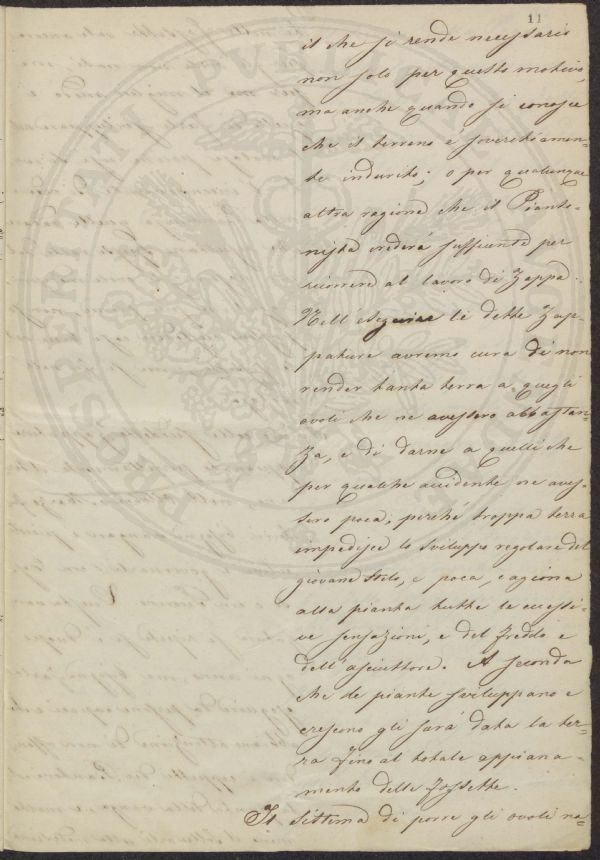 11
il che si rende necessario
non solo per questo motivo,
ma anche quando si conosce
che il terreno è soverchiamen-
te indurito; o per qualunque
altra ragione che il Pianto-
nista crederà sufficiente per
ricorrere al lavoro di Zappa.
Nell'eseguire le dette Zap-
pature avremo cura di non
render tanta terra a quegli
ovoli che ne avessero abbastan-
za, e di darne a quelli che
per qualche accidente ne aves-
sero poca; perché troppa terra
impedisce lo sviluppo regolare del
giovane stelo, e poca, cagiona
alla pianta tutte le eccessi-
ve sensazioni, e del freddo e
dell'asciuttore. A seconda
che le piante sviluppano e
crescono gli sarà data la ter-
ra fino al totale appiana-
mento delle fossette.
Il sistema di porre gli ovoli na-
PROSPERITATI PVBLICAE